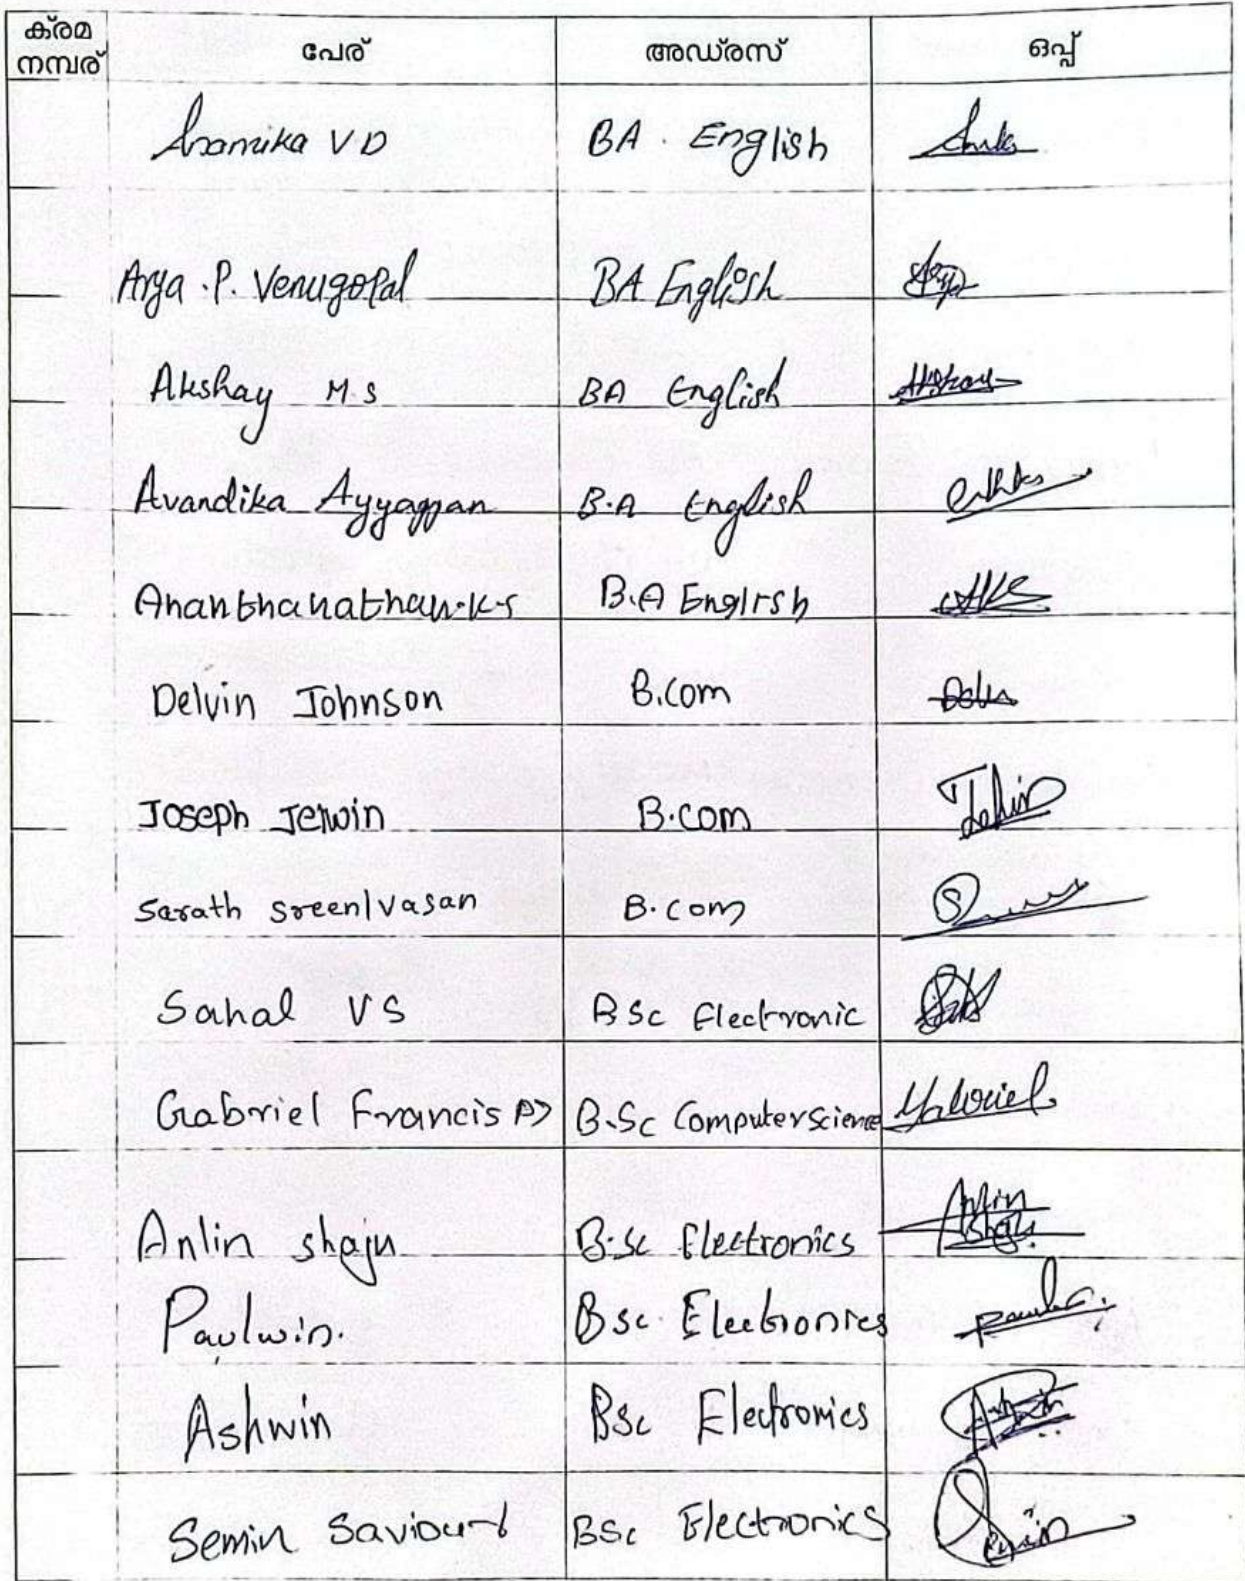 ക്രമ നമ്പര് പേര് അഡ്രസ് ഒപ്പ്
Anamika V D BA. English
Arya.P. Venugopal BA English
Akshay M.S BA English
Avandika Ayyappan B.A English
Ananthanathan.K.S B.A English
Delvin Johnson B.com
Joseph Jerwin B.com
Sarath Sreenivasan B.com
Sahal VS BSc Electronic
Gabriel Francis PJ B.Sc Computer science Gabriel
Anlin shaju B.Sc Electronics Anlin Shaju
Paulwin. Bsc. Electronics
Ashwin Bsc Electronics
Semin Saviour BSc Electronics